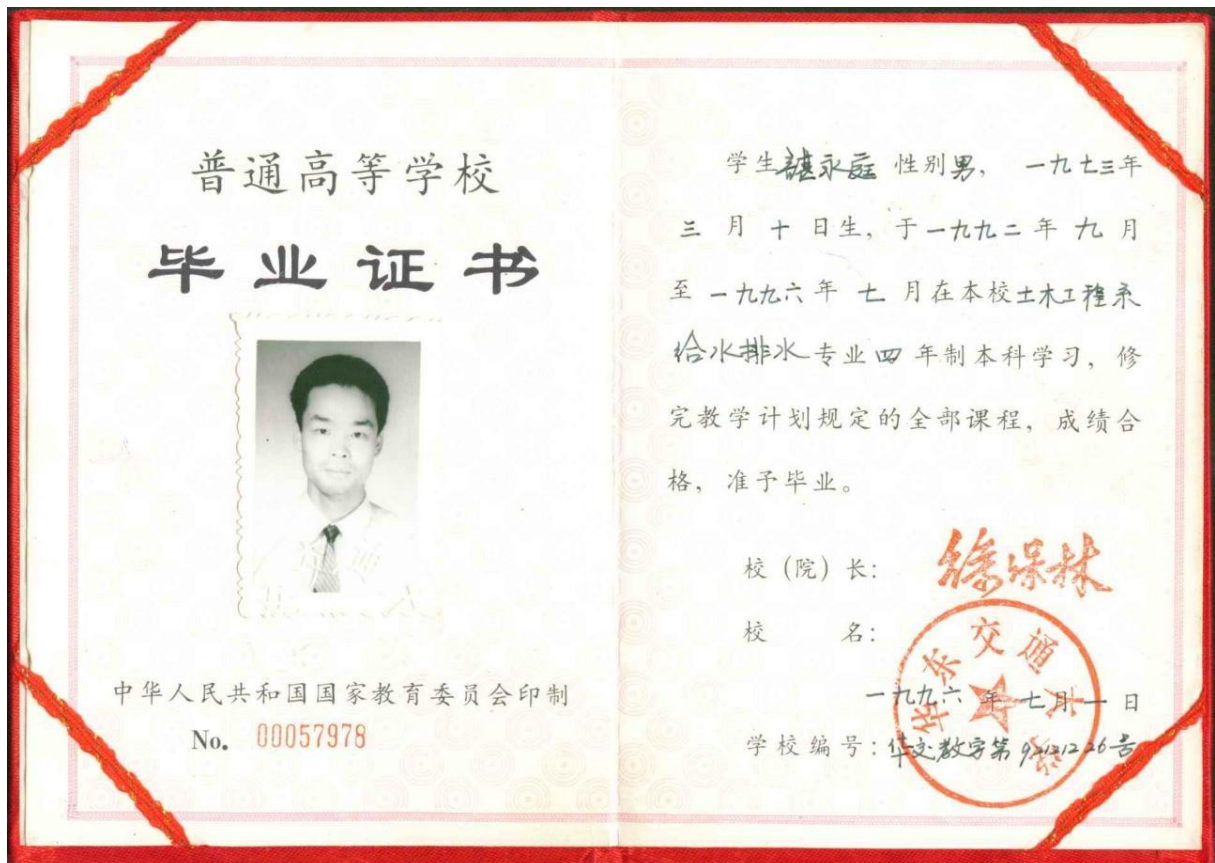 普通高等学校
毕业证书
中华人民共和国国家教育委员会印制
No. 00057978
学生 永庭 性别男, 一九七三年
三月十日生, 于一九九二年九月
至一九九六年七月在本校土木工程系
给水排水专业四年制本科学习, 修
完教学计划规定的全部课程, 成绩合
格, 准予毕业。
校(院)长: 徐保林
校 名: 华东交通大学
一九九六年七月一日
学校编号: 华交教字第 号